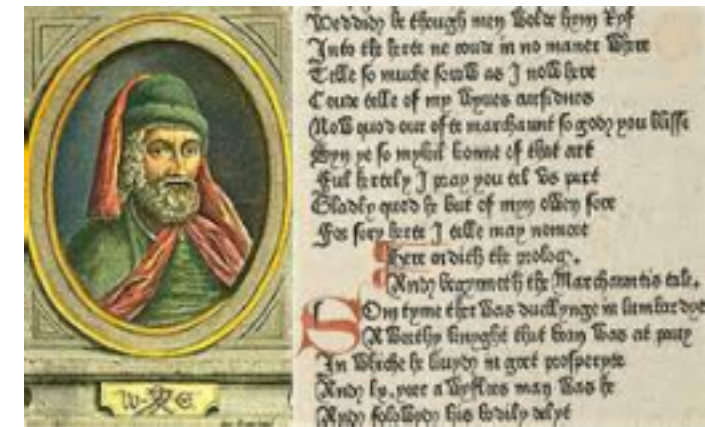 Weddid he though men wolde hym ryf
Into the herte ne coude in no maner wyse
Telle so muche sorow as I now here
Coude telle of my wyues cursidnes
Now quod our oste marchaunt so god you blisse
Syn ye so mykil conne of that art
Ful hertely I pray you tel vs part
Gladly quod he but of myn owen sore
For sory herte I telle may nomore
Here endith the prolog.
And begynneth the Marchauntis tale.
Som tyme ther was duellynge in lumbardye
A worthy knyght that born was at pauy
In whiche he liuyd in gret prosperyte
And lx. yeer a wyfles man was he
And folowyd his bodily delyt
W C